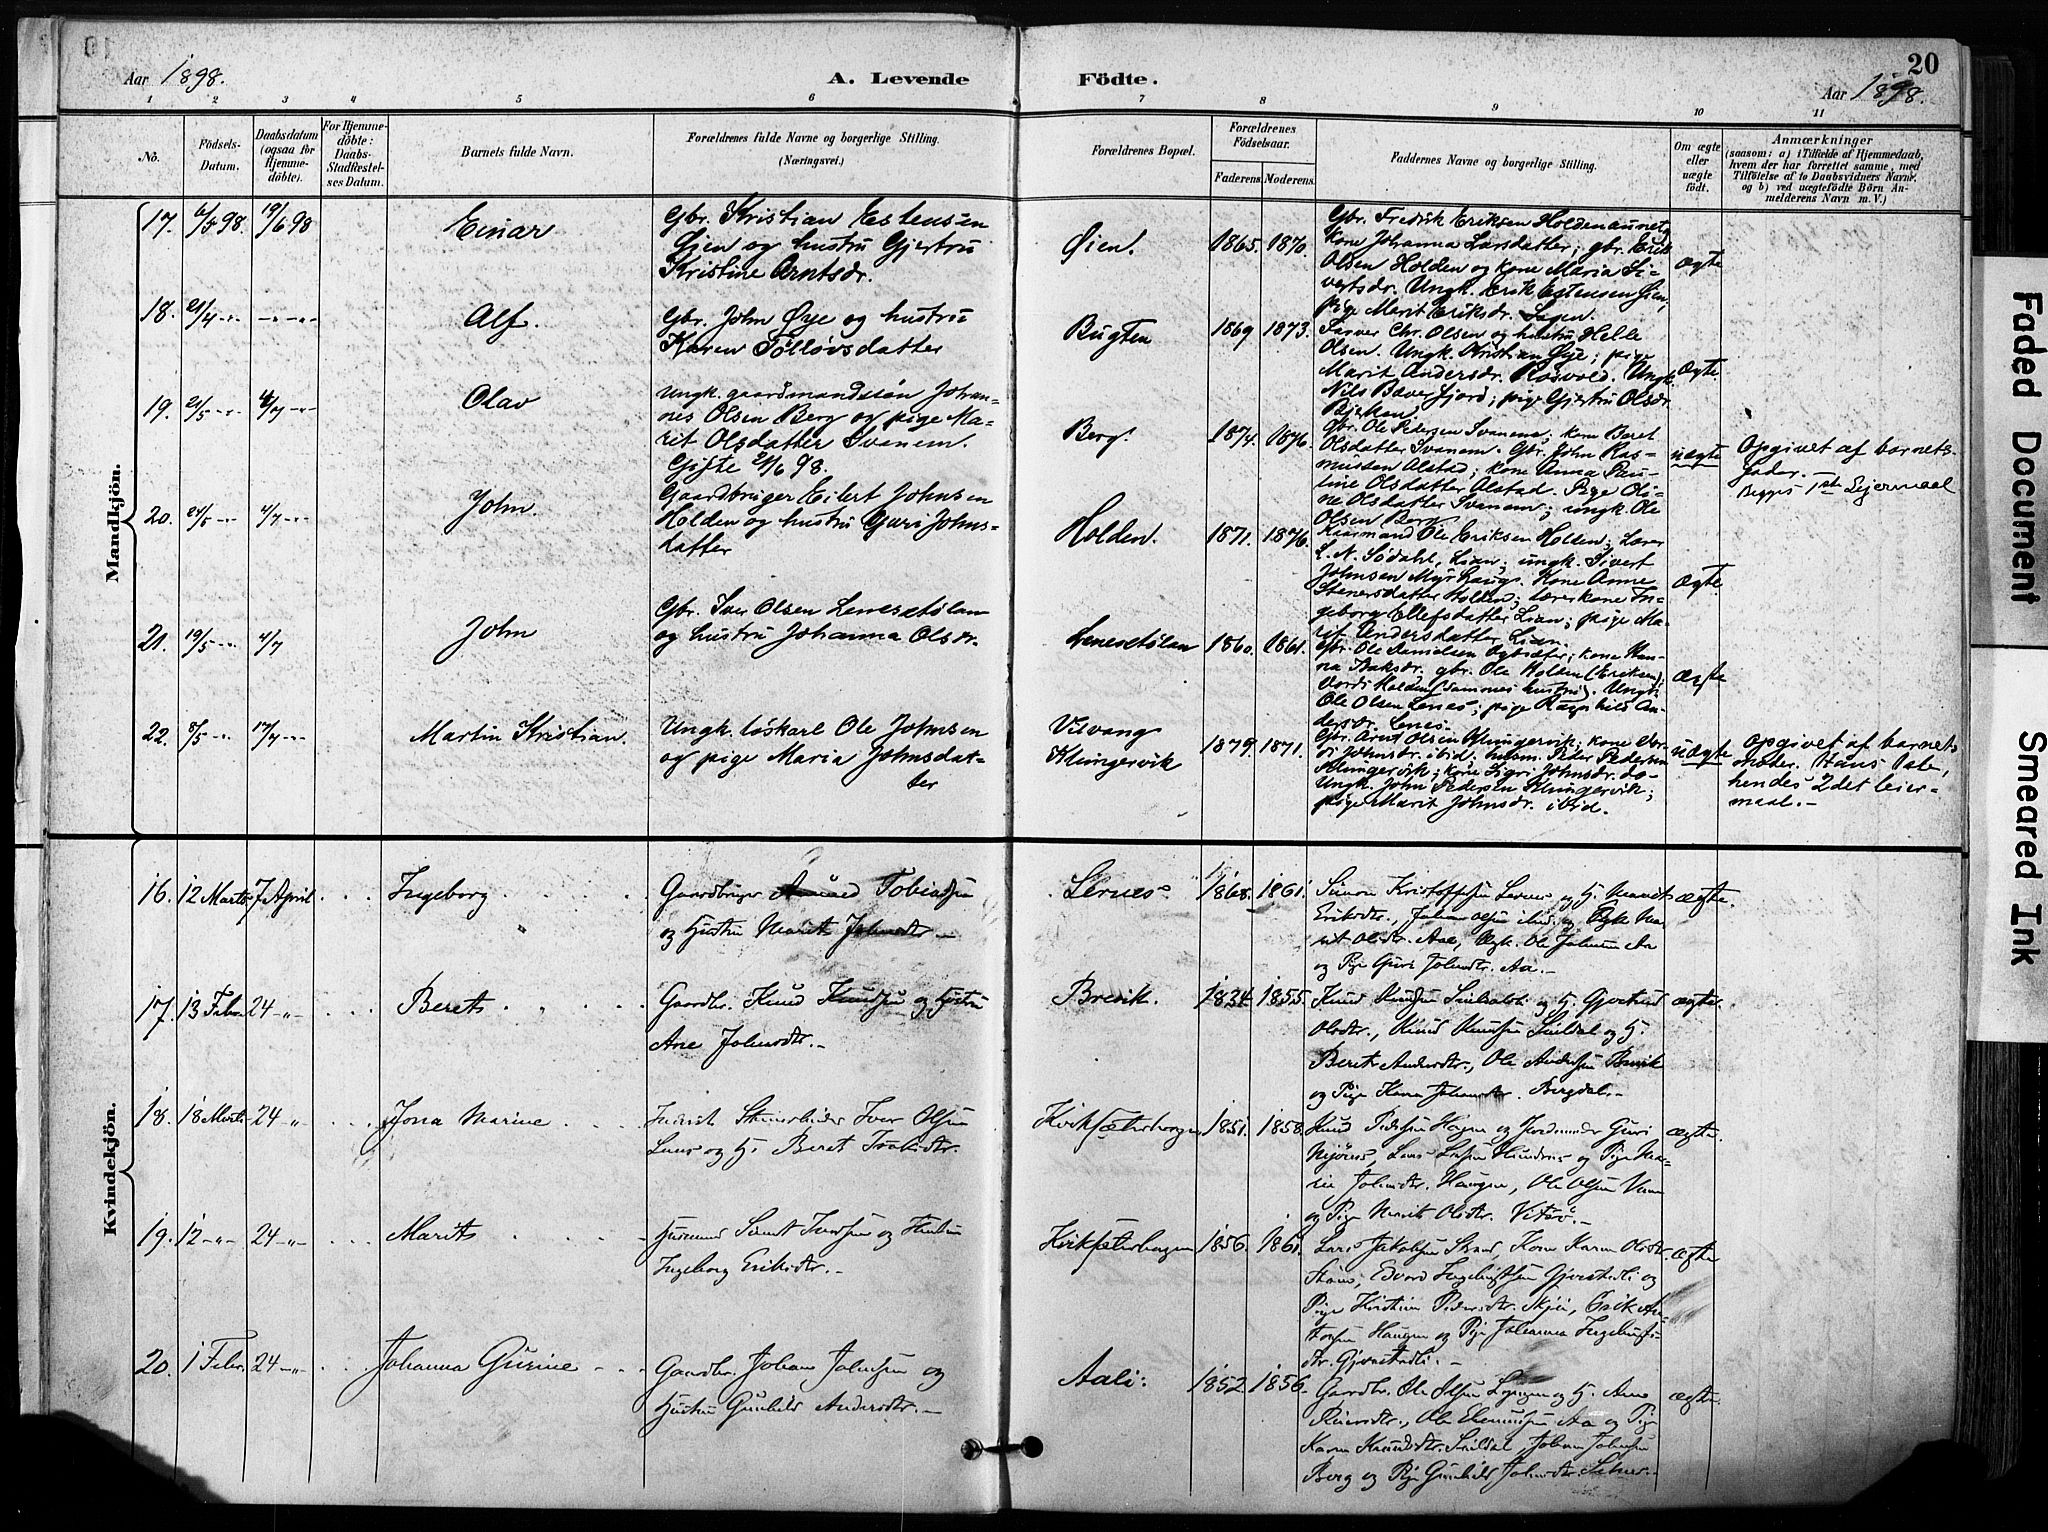 Aar 1898.
A. Levende Födte.
20
Aar 1898.
1 2 3 4 5 6 7 8 9 10 11
No.
Födsels-
Datum.
Daabsdatum
(ogsaa for
Hjemme-
döbte).
For Hjemme-
döbte:
Daabs-
Stadfæstel-
ses Datum.
Barnets fulde Navn.
Forældrenes fulde Navne og borgerlige Stilling.
(Næringsvei.)
Forældrenes Bopæl.
Forældrenes
Födselsaar.
Faderens. Moderens.
Faddernes Navne og borgerlige Stilling.
Om ægte
eller
uægte
födt.
Anmærkninger
(saasom: a) i Tilfælde af Hjemmedaab,
hvem der har forrettet samme, med
Tilföielse af to Daabsvidners Navne,
og b) ved uægtefödte Börn An-
melderens Navn m. V.)
Mandkjön.
17. 6/5 98. 19/6 98
Einar
Gbr. Kristian Estensen
Øien og hustru Gjertru
Kristine Arntsdr.
Øien.
1865. 1870.
Gbr. Fredrik Eriksen Holdenaunet,
Kone Johanna Larsdatter; gbr. Erik
Olsen Holden og kone Maria Si-
vertsdr. Ungk. Erik Estensen Øien,
pige Marit Eriksdr.
ægte
18. 21/4 -"- -"-
Alf.
Gbr. John Øye og hustru
Karen Tølløvsdatter
Bugten
1869 1873.
Chr. Olsen og hustru Helle
Olsen. Ungk. Kristian Øye; pige
Marit Andersdr. Rosvold. Ungk.
Nils Baverfjord; pige Gjertru Olsdr.
ægte.
19. 21/5 -"- 4/7 -"-
Olav
Ungk. gaardmandssøn Johan-
nes Olsen Berg og pige Ma-
rit Olsdatter Svanem.
Gifte 21/6 98.
Berg.
1874. 1876.
Gbr. Ole Pedersen Svanem; kone Beret
Olsdatter Svanem. Gbr. John Ras-
mussen Alstad; kone Anna Pau-
line Olsdatter Alstad. Pige Oli-
ne Olsdatter Svanem; ungk. Ole
Olsen Berg
uægte
Opgivet af barnets
fader.
Begges 1ste Lejermaal
20. 24/5 -"- 4/7 -"-
John
Gaardbruger Eilert Johnsen
Holden og hustru Guri Johns-
datter
Holden.
1871. 1876.
Kaarmand Ole Eriksen Holden; Lærer
L. N. Södahl, Lian; ungk. Sivert
Johnsen Myrhaug. Kone Anne
Stenersdatter Holden; lærerkone In-
geborg Ellefsdatter Lian; pige Ma-
rit Andersdatter Lian.
ægte
21. 19/5 -"- 4/7
John
Gbr. Iver Olsen Lenesetølan
og hustru Johanna Olsdr.
Lenesetølan
1860. 1861.
Gbr. Ole Danielsen; kone Han-
na Isaksdr. gbr. Ole Holden (Eriksen);
Holden (sammes hustru). Ungk.
Ole Olsen Lenes; pige Ragnhild An-
dersdr. Lenes.
ægte
22. 8/5 -"- 17/7 -"-
Martin Kristian.
Ungk. løskarl Ole Johnsen
og pige Maria Johnsdat-
ter
Vilvang
Klungervik
1879. 1871.
Gbr. Arnt Olsen Klungervik; kone
Johnsdr. ibid; husm. Peter Pedersen
Klungervik; kone Sigri Johnsdr. do-
Ungk. John Pedersen Klungervik;
pige Marit Johnsdr. ibid.
uægte
opgivet af barnets
moder. Hans 1ste,
hendes 2det leier-
maal.-
Kvindekjön.
16. 12 Marts 7 April
Ingeborg
Gaardbruger Tobiassen
og Hustru Marit Johnsdtr. -
Lernes
1868. 1861.
Simon Kristoffersen Lernes og H. Marit
Eriksdtr., Johan Olsen ibid. og Pige Ma-
rit Olsdtr. Aa, Ungk. Ole Johnsen Aa
og Pige Guri Johnsdtr. Aa. -
ægte.
17. 13 Febr. 24 -"-
Berets
Gaardbr. Knud Knudsen og Hustru
Ane Johnsdtr. -
Brevik.
1834. 1855.
Knud Knudsen og H. Gjertrud
Olsdtr., Knud Knudsen Snildal og H.
Berets Andersdtr., Ole Andersen Brevik
og Pige Karen Johnsdtr. Bergdal. -
ægte.
18. 18 Marts 24 -"-
Jona Marine
Iver Olsen
og H. Beret
Kirksæterhogen
1851. 1858.
Knud Pedersen Hagen og Guri
Lars Larsen og Pige Ma-
rie Johnsdtr. Haugen, Ole Olsen
og Pige Marits Olsdtr. Vitsø. -
ægte.
19. 12 -"- 24 -"-
Marits
Husmand Sivert Iversen og Hustru
Ingeborg Eriksdtr. -
Kirksæterhogen
1856. 1861.
Lars Jakobsen Strand, Kone Karen Olsdtr.
Edvard Ingebrigtsen Gjerstadli og
Pige Kristine Pedersdtr. Skjei, Erik An-
Haugen og Pige Johanna Ingebrigts-
dtr. Gjerstadli. -
ægte
20. 1 Febr. 24 -"-
Johanna Gurine
Gaardbr. Johan Johnsen og
Hustru Gunhild Andersdtr. -
Aali.
1852 1856.
Gaardbr. Ole Olsen og H. Ane
Ole Aa og Pige
Karen Knudsdtr. Snildal, Johan Johnsen
Berg og Pige Gunhild Johnsdtr.
ægte.
Faded Document
Smeared Ink